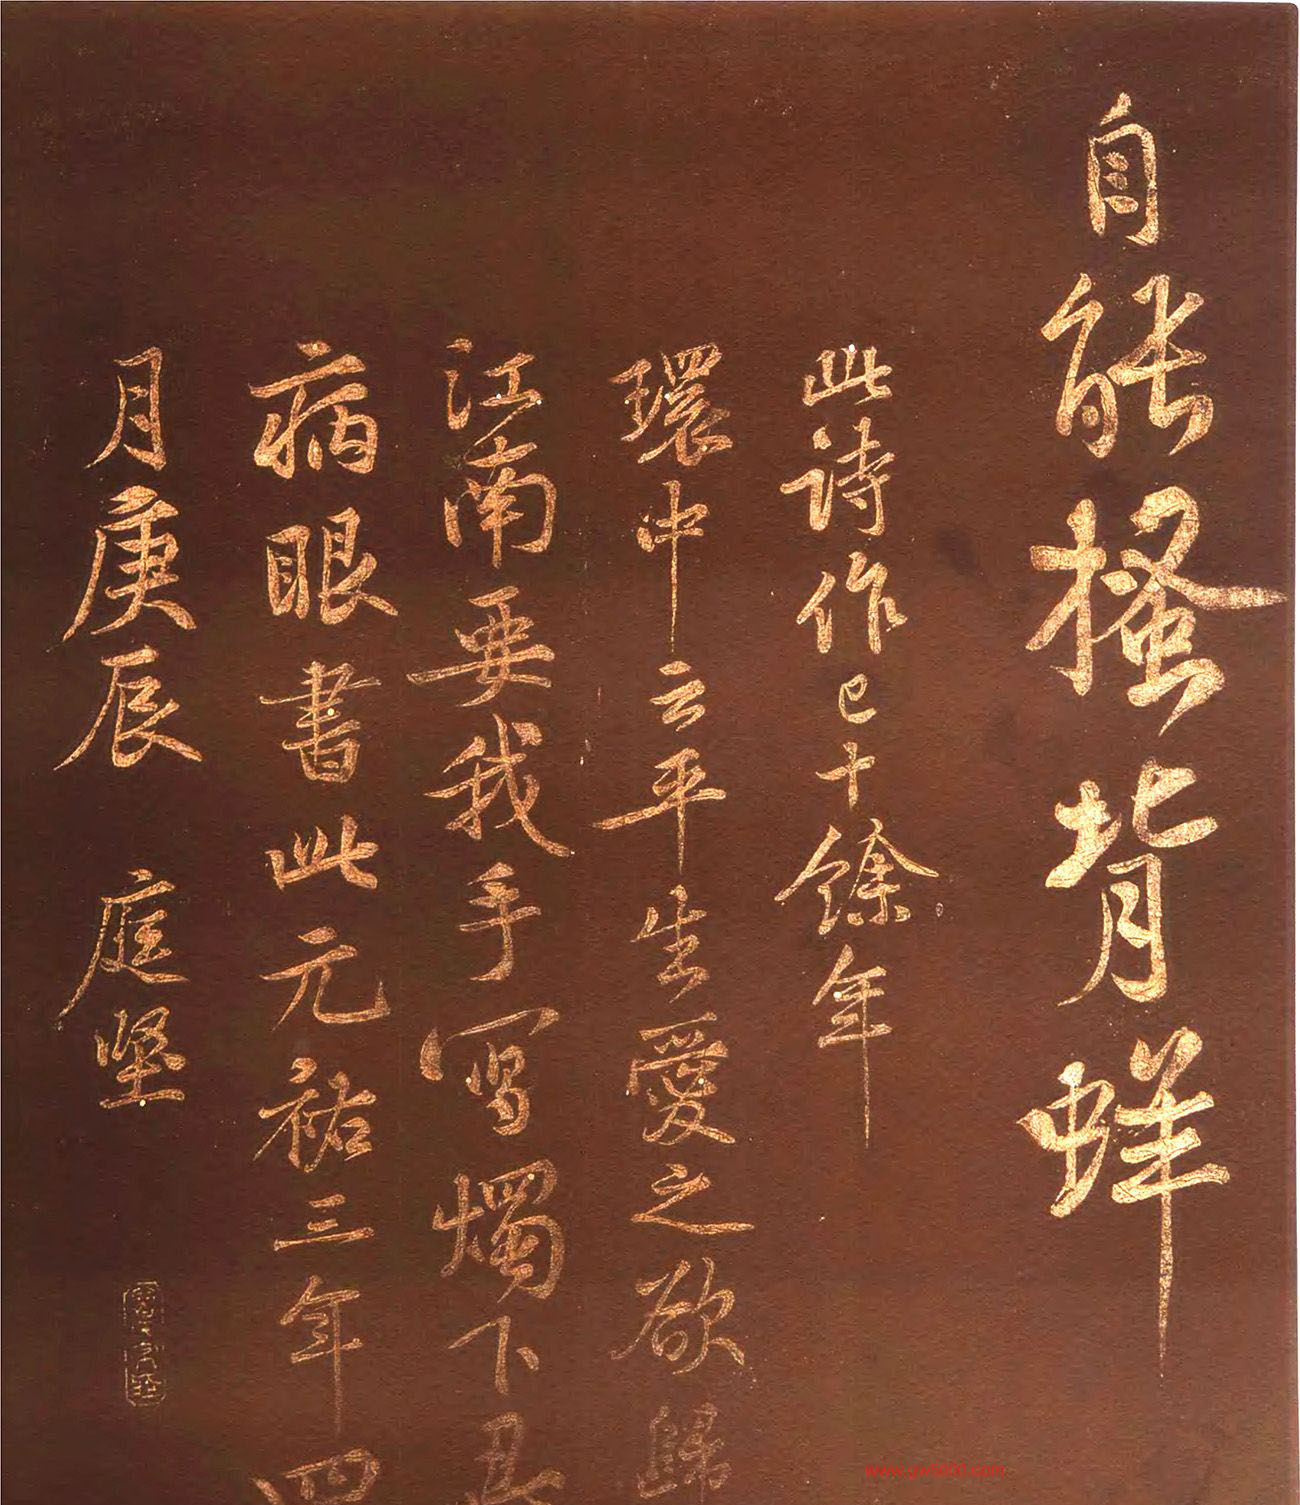 自能搔背蛘
此詩作已十餘年
環中云平生愛之欲歸
江南要我手寫燭下
病眼書此元祐三年四
月庚辰 庭堅
www.gw5000.com